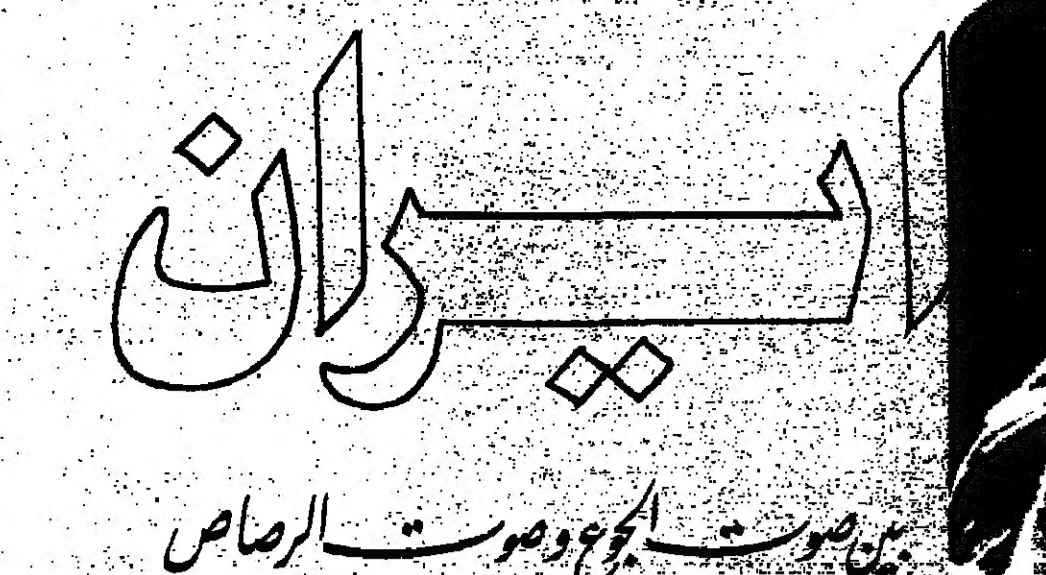 ايران
بين صوت الجوع وصوت الرصاص